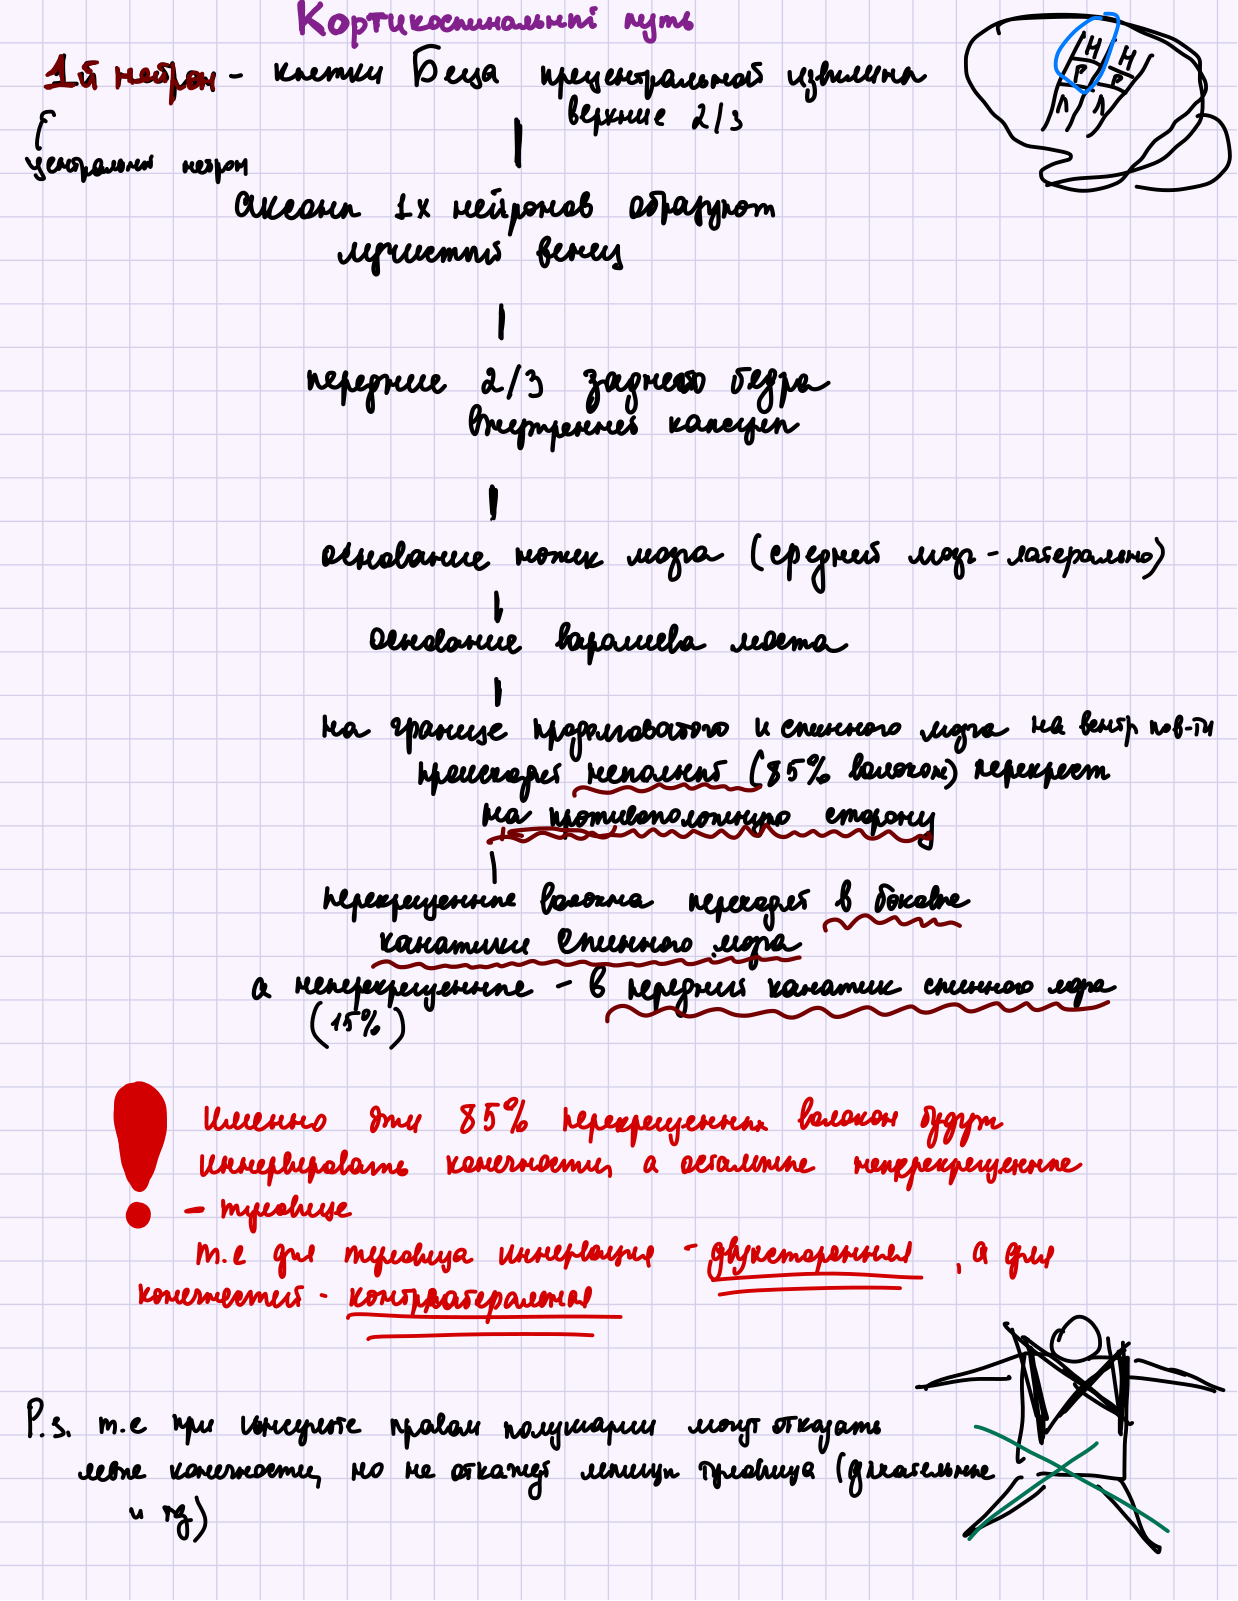 Кортикоспинальный путь
1й нейрон - клетки Беца прецентральной извилины
верхние 2/3
центральный нейрон
аксоны 1х нейронов образуют
лучистый венец
передние 2/3 заднего бедра
внутренней капсулы
основание ножек мозга (средний мозг - латерально)
основание варалиева моста
на границе продолговатого и спинного мозга на вентр пов-ти
происходит неполный (85% волокон) перекрест
на противоположную сторону
перекрещенные волокна переходят в боковые
канатики спинного мозга
а неперекрещенные - в передний канатик спинного мозга
(15%)
Именно эти 85% перекрещенных волокон будут
иннервировать конечности, а остальные неперекрещенные
- туловище
т.е для туловища иннервация - двухсторонняя, а для
конечностей - контрлатеральная
P.s. т.е при инсульте правом полушарии могут отказать
левые конечности, но не откажут мышцы туловища (дыхательные
и тд)
Н Н
Р Р
Л Л